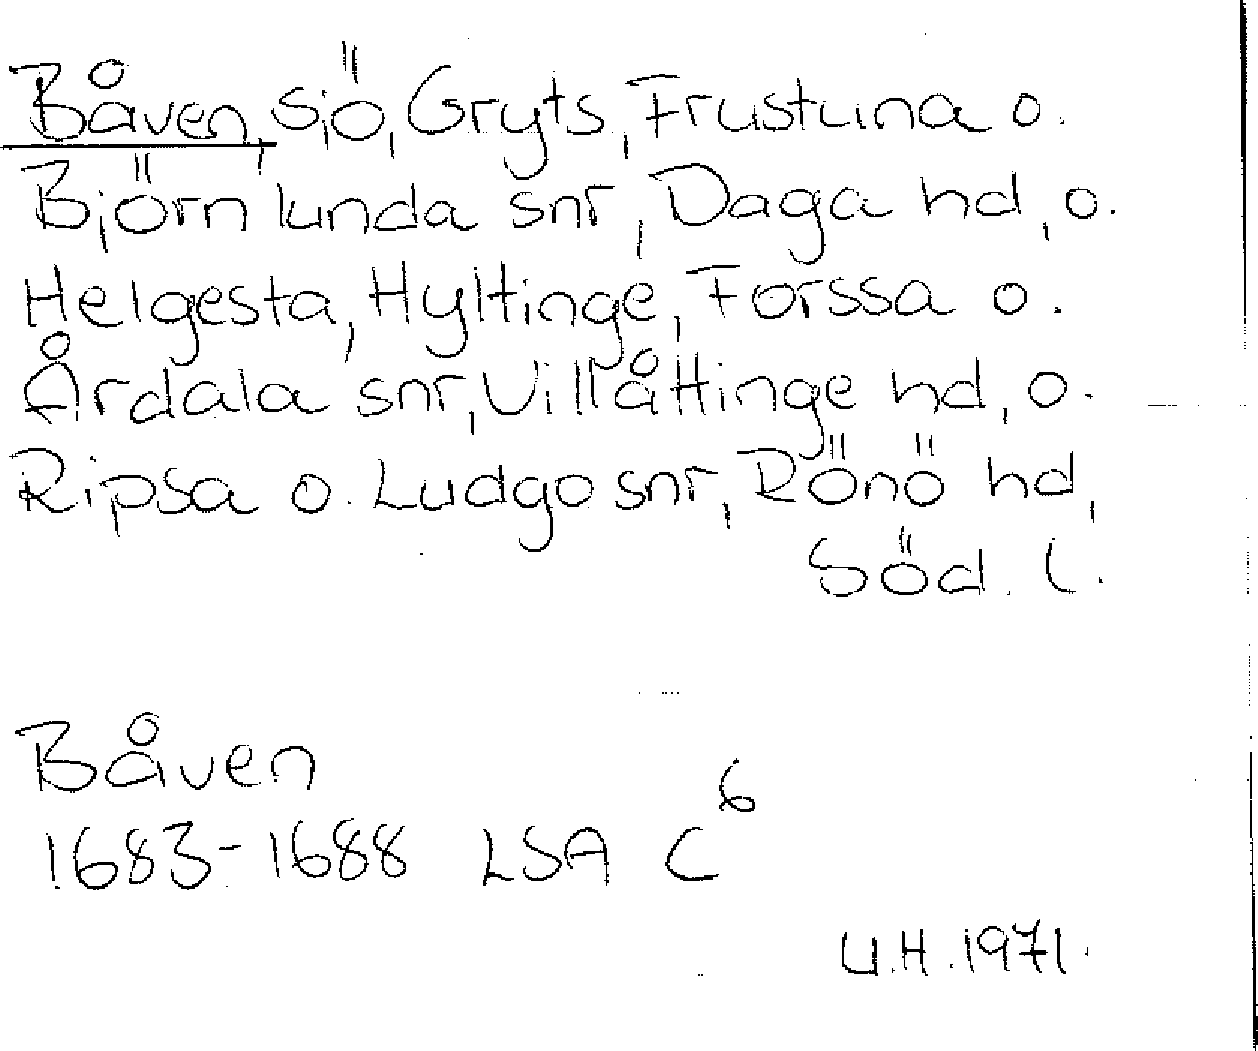 Båven, sjö, Gryts, Frustuna o.
Björnlunda snr, Daga hd, o.
Helgesta, Hyltinge, Forssa o.
Årdala snr, Villåttinge hd, o.
Ripsa o. Ludgo snr, Rönö hd,
Söd. l.
Båven
1683-1688 LSA C⁶
U.H. 1971.